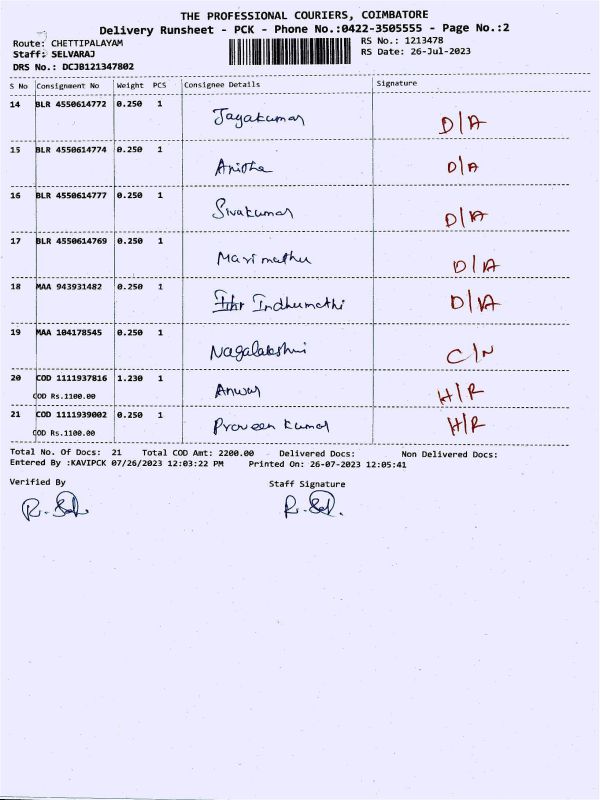 THE PROFESSIONAL COURIERS, COIMBATORE
Delivery Runsheet - PCK - Phone No.:0422-3505555 - Page No.:2
Route: CHETTIPALAYAM RS No.: 1213478
Staff: SELVARAJ RS Date: 26-Jul-2023
DRS No.: DCJB121347802
S No Consignment No Weight PCS Consignee Details Signature
14 BLR 4550614772 0.250 1 Jayakumar D/A
15 BLR 4550614774 0.250 1 Anitha D/A
16 BLR 4550614777 0.250 1 Sivakumar D/A
17 BLR 4550614769 0.250 1 Marimuthu D/A
18 MAA 943931482 0.250 1 Indhumathi D/A
19 MAA 104178545 0.250 1 Nagalakshmi C/N
20 COD 1111937816 1.230 1 Anwar H/R
COD Rs.1100.00
21 COD 1111939002 0.250 1 Praveen Kumar H/R
COD Rs.1100.00
Total No. Of Docs: 21 Total COD Amt: 2200.00 Delivered Docs: Non Delivered Docs:
Entered By :KAVIPCK 07/26/2023 12:03:22 PM Printed On: 26-07-2023 12:05:41
Verified By Staff Signature